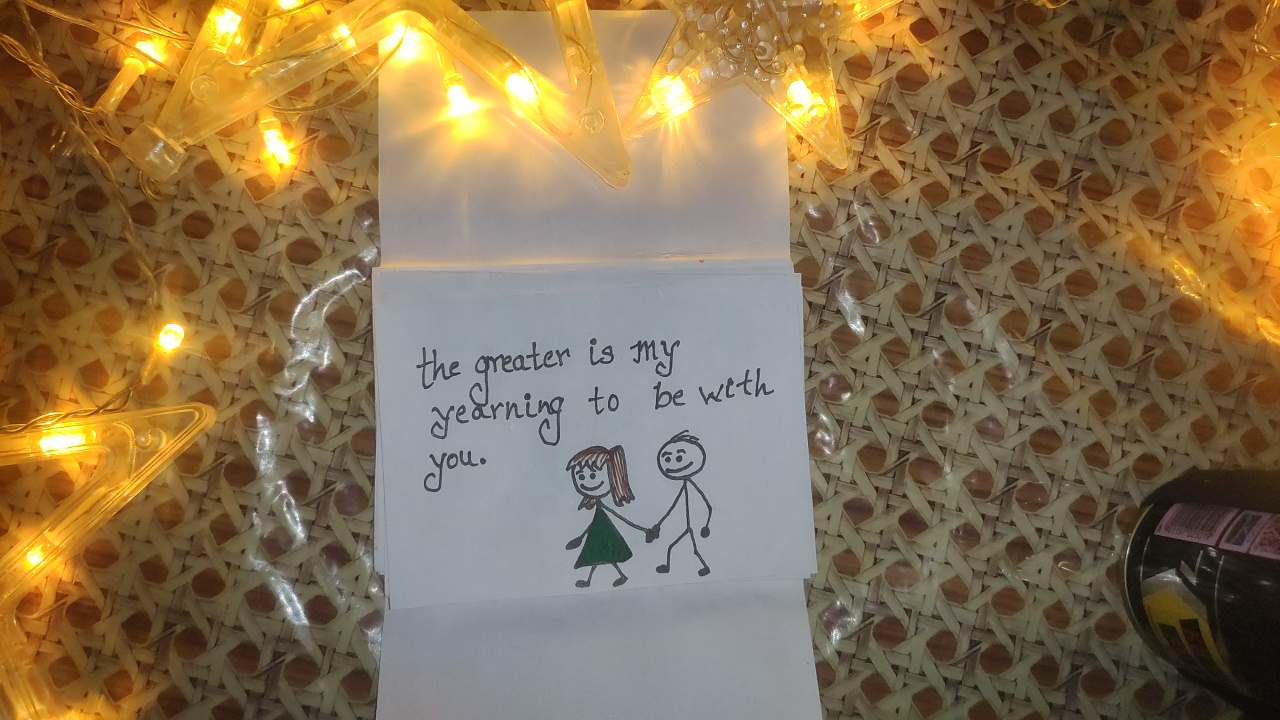 the greater is my
yearning to be with
you.